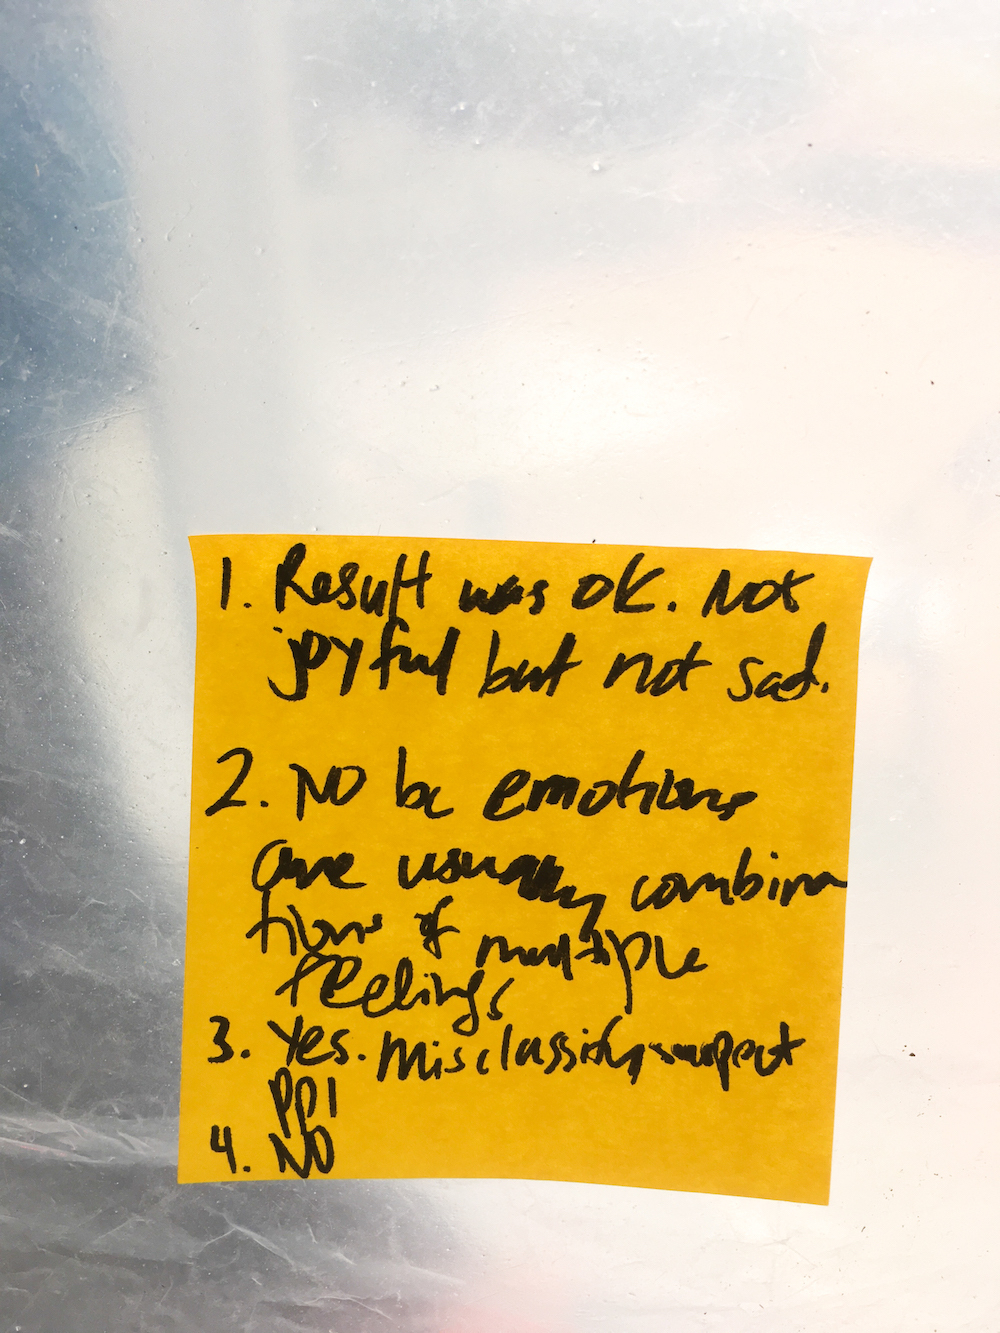 1. Result was ok. Not
joyful but not sad.
2. NO bc emotions
are usually combina
tions of multiple
feelings
3. Yes. Misclassify suspect
PPI
4. NO